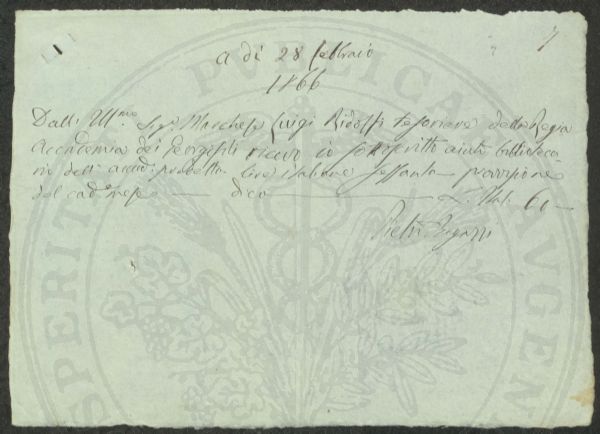 1
7
a dì 28 febbraio
1866
Dall' Ill.mo Sig.r Marchese Luigi Ridolfi tesoriere della Regia
Accademia dei Georgofili ricevo io sottoscritto aiuto biblioteca
rio dell' accad. predetta Lire italiane sessanta provvisione
del cad.te mese dico L. Ital. 60
Pietro
PUBLICAE
PROSPERITATIS AUGENDAE